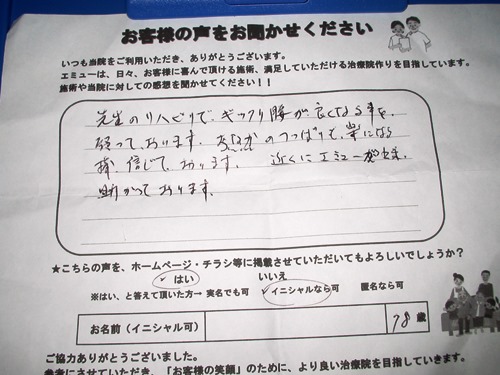 お客様の声をお聞かせください
いつも当院をご利用いただき、ありがとうございます。
エミューは、日々、お客様に喜んで頂ける施術、満足していただける治療院作りを目指しています。
施術や当院に対しての感想を聞かせてください！！
先生のリハビリで、ギックリ腰が良くなる事を、
願っております。 のつばりも、楽になる
様、信じております。 近くにエミューが
助かっております。
★こちらの声を、ホームページ・チラシ等に掲載させていただいてもよろしいでしょうか？
はい いいえ
※はい、と答えて頂いた方→ 実名でも可 イニシャルなら可 匿名なら可
お名前（イニシャル可） 78歳
ご協力ありがとうございました。
参考にさせていただき、「お客様の笑顔」のために、より良い治療院を目指していきます。